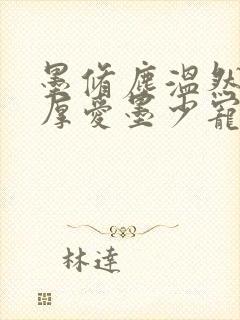 墨脩塵溫然
厚愛墨少寵
林達